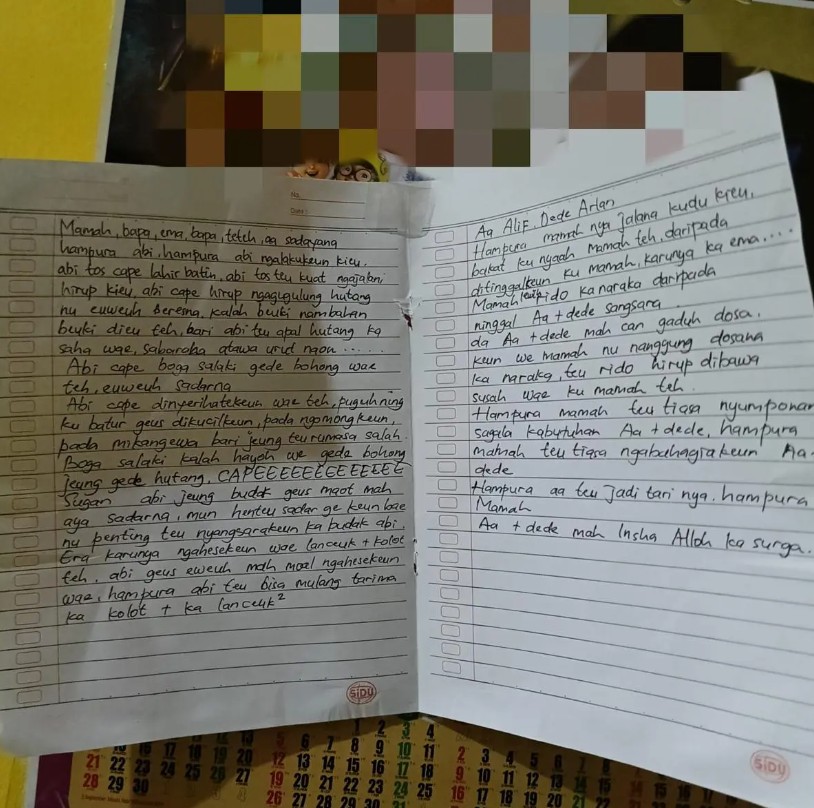 No.
Date:
Mamah, bapa, ema, bapa, teteh, aa sadayana
hampura abi, hampura abi ngalakukeun kieu.
abi tos cape lahir batin, abi tos teu kuat ngajalani
hirup kieu, abi cape hirup ngagugulung hutang
nu euweuh berema, kalah beuki nambahan
beuki dieu teh, bari abi teu apal hutang ka
saha wae, sabaraha atawa urud naon .....
Abi cape boga salaki gede bohong wae
teh, euweuh sadarna
Abi cape dinyerihatekeun wae teh, puguh ning
ku batur geus dikucilkeun, pada ngomongkeun,
pada mikangewa bari jeung teu rumasa salah.
Boga salaki kalah hayoh we gede bohong
jeung gede hutang, CAPEEEEEEEEEEEEE
Sugan abi jeung budak geus maot mah
aya sadarna, mun henteu sadar ge keun bae
nu penting teu nyangsarakeun ka budak abi.
Era karunya ngahesekeun wae lanceuk + kolot
teh, abi geus eweuh mah moal ngahesekeun
wae, hampura abi teu bisa mulang tarima
ka kolot + ka lanceuk²
SIDU
Aa Alif, Dede Arlan
Hampura mamah nya jalana kudu kieu.
bakat ku nyaah Mamah teh, daripada
ditinggalkeun ku mamah, karunya ka ema....
Mamah rido ka naraka daripada
ninggal Aa + dede sangsara
da Aa + dede mah can gaduh dosa.
keun we Mamah nu nanggung dosana
ka naraka, teu rido hirup dibawa
susah wae ku mamah teh.
Hampura mamah teu tiasa nyumponan
sagala kabutuhan Aa + dede, hampura
mamah teu tiasa ngabahagiakeun Aa
dede
Hampura aa teu jadi tari nya. hampura
Mamah
Aa + dede mah Insha Alloh ka surga.
SIDU